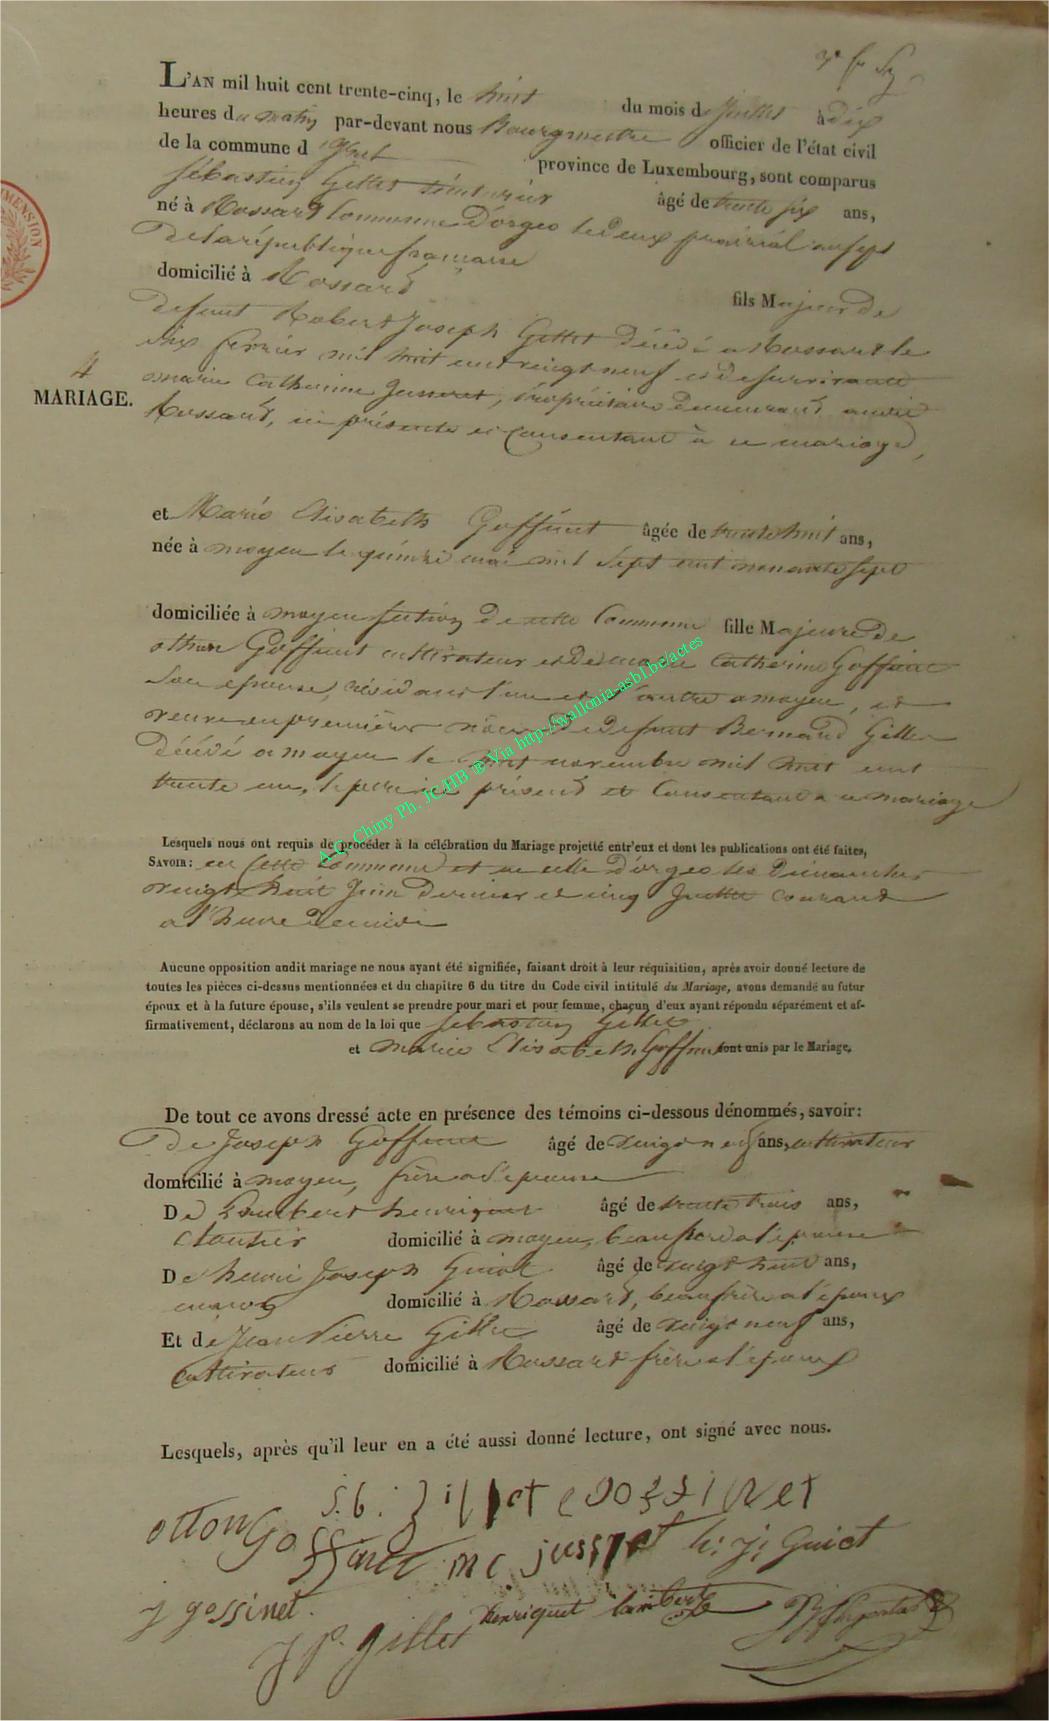 L'AN mil huit cent trente-cinq, le huit du mois de Juillet à dix
heures du matin par-devant nous Bourgmestre officier de l'état civil
de la commune d'Izel province de Luxembourg, sont comparus
Sébastien Gillet âgé de trente six ans,
né à Rossart Commune D'orgeo le deux prairial an sept
De la république française
domicilié à Rossard fils Majeur de
defunt Robert Joseph Gillet Décédé a Rossart le
six fevrier mil huit cent vingt neuf et de survivante
marie Catherine Jusseret, propriétaire demeurant audit
Rossard, ici présente et Consentant à ce mariage,
4
MARIAGE.
et Marie Elisabeth Goffinet âgée de trente huit ans,
née à moyen le quinze mai mil sept cent nonante sept
domiciliée à moyen section de cette Commune fille Majeure De
othon Goffinet cultivateur et De marie Catherine Goffinet
Son epouse, résidant l'un et l'autre a moyen, et
veuve en premières nôces De defunt Bernard Gillet
Décédé a moyen le novembre mil huit cent
trente un, le pere ici présent et Consentant a ce mariage
Lesquels nous ont requis de procéder à la célébration du Mariage projetté entr'eux et dont les publications ont été faites,
SAVOIR: en Cette Commune et en celle D'orgeo les Dimanches
vingt huit Juin Dernier et cinq Juillet courant
a l'heure De midi
Aucune opposition audit mariage ne nous ayant été signifiée, faisant droit à leur réquisition, après avoir donné lecture de
toutes les pièces ci-dessus mentionnées et du chapitre 6 du titre du Code civil intitulé du Mariage, avons demandé au futur
époux et à la future épouse, s'ils veulent se prendre pour mari et pour femme, chacun d'eux ayant répondu séparément et af-
firmativement, déclarons au nom de la loi que Sebastien Gillet
et marie Elisabeth Goffinet sont unis par le Mariage.
De tout ce avons dressé acte en présence des témoins ci-dessous dénommés, savoir:
De Joseph Goffinet âgé de vingt neuf ans, cultivateur
domicilié à moyen, frère a l'epouse
De Lambert henriquet âgé de trente trois ans,
Cloutier domicilié à moyen, beau frere a l'épouse
De henri Joseph Guiot âgé de vingt huit ans,
domicilié à Rossart, beau frère a l'époux
Et de Jean Pierre Gillet âgé de vingt neuf ans,
Cultivateur domicilié à Rossart frère a l'epoux
Lesquels, après qu'il leur en a été aussi donné lecture, ont signé avec nous.
S.b. Gillet e goffinet
otton Goffinet mc jusseret h: j: Guiot
j goffinet. henriquet lambert
J P. gillet
A.C. Chiny Ph. JC.HB ® Via http://wallonia-asbl.be/actes